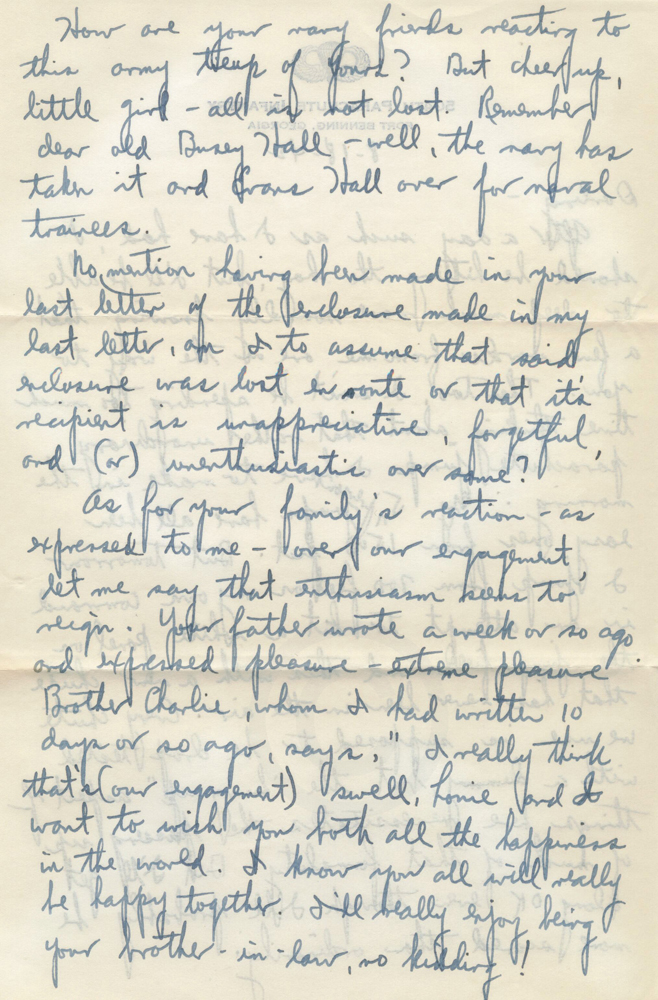 How are your navy friends reacting to
this army theup of yours? But cheer up,
little girl - all is not lost. Remember
dear old Busey Hall - well, the navy has
taken it and Evans Hall over for naval
trainees.
No mention having been made in your
last letter of the enclosure made in my
last letter, am I to assume that said
enclosure was lost en route or that it's
recipient is unappreciative, forgetful,
and (or) unenthusiastic over same?
As for your family's reaction - as
expressed to me - over our engagement,
let me say that enthusiasm seems to
reign. Your father wrote a week or so ago
and expressed pleasure - extreme pleasure.
Brother Charlie, whom I had written 10
days or so ago, says, "I really think
that's (our engagement) swell, homie and I
want to wish you both all the happiness
in the world. I know you all will really
be happy together. I'll really enjoy being
your brother-in-law, no kidding!!